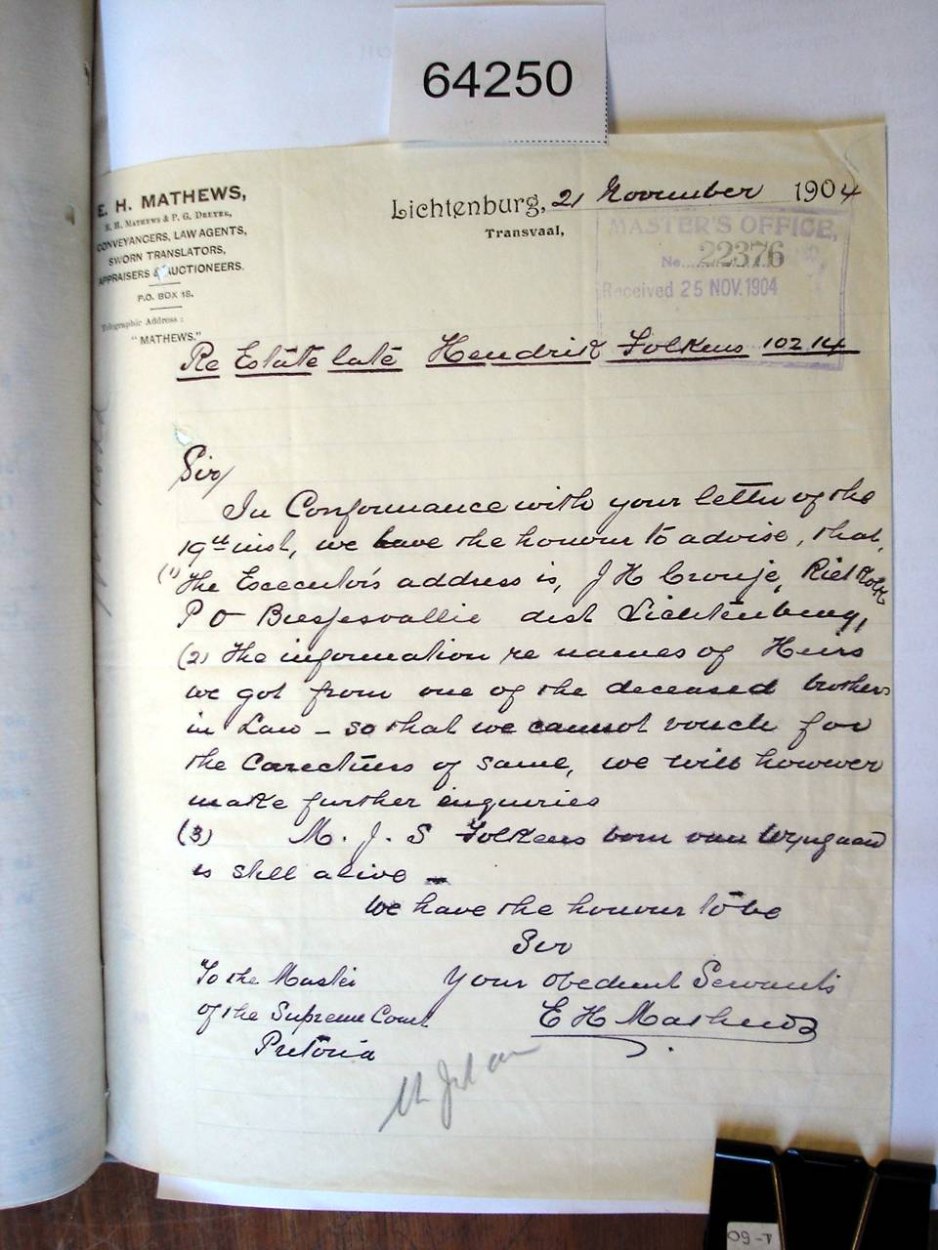 64250
E. H. MATHEWS,
E. H. MATHEWS & P. G. DREYER,
CONVEYANCERS, LAW AGENTS,
SWORN TRANSLATORS,
APPRAISERS & AUCTIONEERS.
P.O. BOX 18.
Telegraphic Address:
"MATHEWS."
Lichtenburg, 21 November 1904
Transvaal,
MASTER'S OFFICE,
No. 22376
Received 25 NOV. 1904
Re Estate late Hendrik Folkens 10214
Sir/
In Conformance with your letter of the
19th inst, we have the honour to advise, that,
(1) The Executor's address is, J H Cronje, Rietkolk
P O Biesjesvallie dist Lichtenburg,
(2) The information re names of Heirs
we got from one of the deceased brothers
in Law – so that we cannot vouch for
the Corectness of same, we will however
make further enquiries
(3) M. J. S Folkens born van Wyngaard
is still alive –
We have the honour to be
Sir
To the Master Your obedient Servants
of the Supreme Court E H Mathews
Pretoria